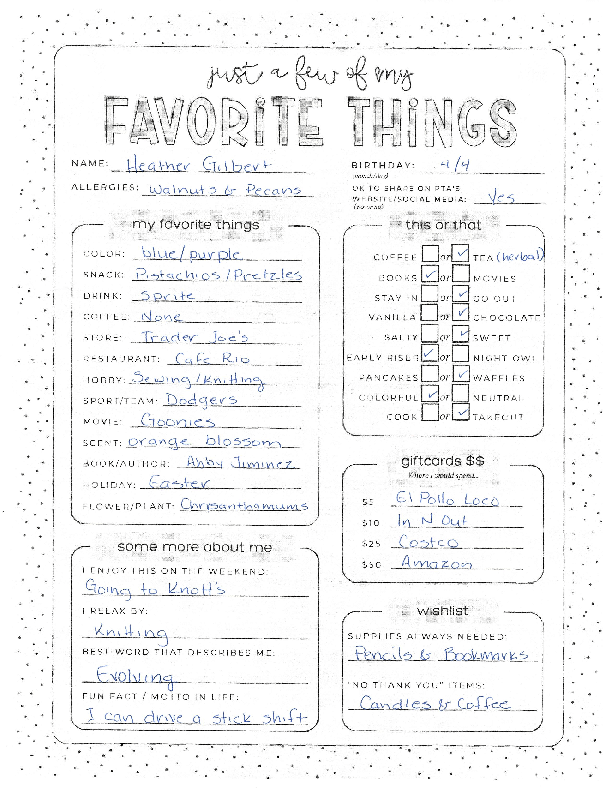 just a few of my
FAVORITE THINGS
NAME: Heather Gilbert
ALLERGIES: Walnuts & Pecans
BIRTHDAY: 4/4
(month/day)
OK TO SHARE ON PTA'S
WEBSITE/SOCIAL MEDIA: Yes
(yes or no)
my favorite things
COLOR: blue/purple
SNACK: Pistachios/Pretzles
DRINK: Sprite
COFFEE: None
STORE: Trader Joe's
RESTAURANT: Cafe Rio
HOBBY: Sewing/Knitting
SPORT/TEAM: Dodgers
MOVIE: Goonies
SCENT: orange blossom
BOOK/AUTHOR: Abby Jiminez
HOLIDAY: Easter
FLOWER/PLANT: Chrysanthamums
this or that
COFFEE or ✓ TEA (herbal)
BOOKS ✓ or MOVIES
STAY IN or ✓ GO OUT
VANILLA or ✓ CHOCOLATE
SALTY or ✓ SWEET
EARLY RISER ✓ or NIGHT OWL
PANCAKES or ✓ WAFFLES
COLORFUL ✓ or NEUTRAL
COOK or ✓ TAKEOUT
giftcards $$
Where I would spend...
$5 El Pollo Loco
$10 In N Out
$25 Costco
$50 Amazon
some more about me
I ENJOY THIS ON THE WEEKEND:
Going to Knott's
I RELAX BY:
Knitting
BEST WORD THAT DESCRIBES ME:
Evolving
FUN FACT / MOTTO IN LIFE:
I can drive a stick shift
wishlist
SUPPLIES ALWAYS NEEDED:
Pencils & Bookmarks
"NO THANK YOU" ITEMS:
Candles & Coffee